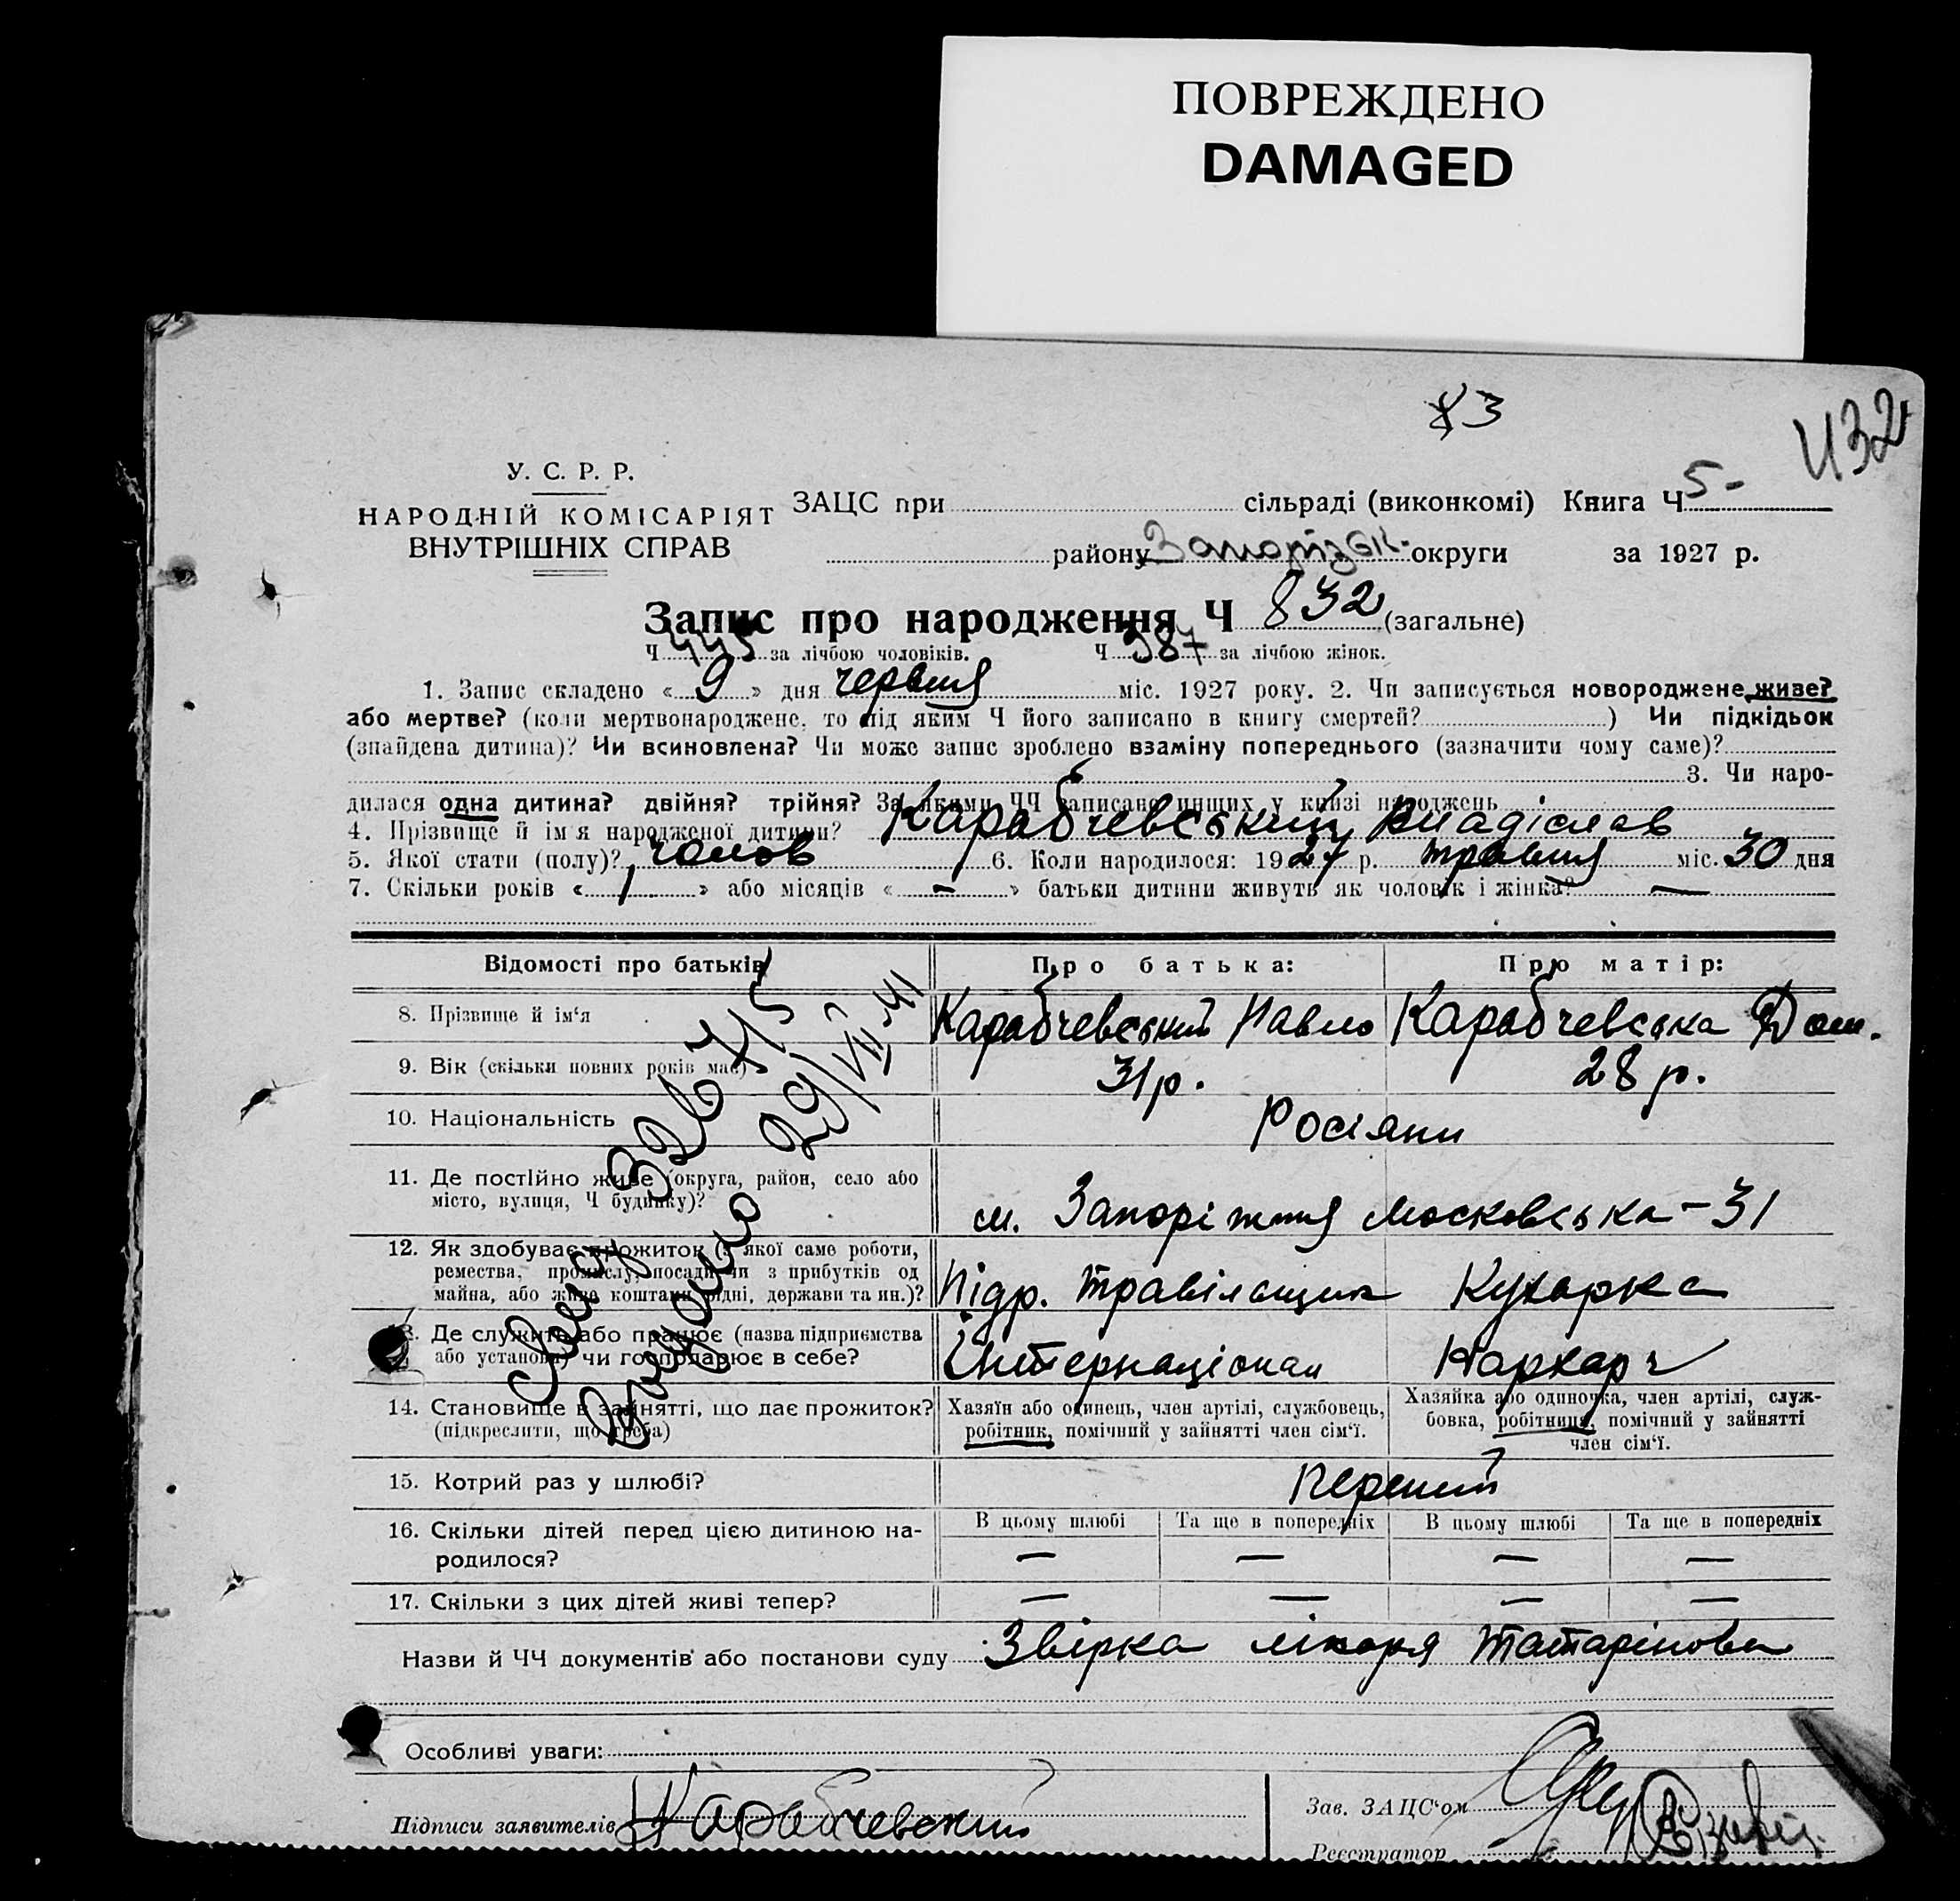 ПОВРЕЖДЕНО
DAMAGED
432
У. С. Р. Р.
НАРОДНІЙ КОМІСАРІЯТ
ВНУТРІШНІХ СПРАВ
ЗАЦС при сільраді (виконкомі) Книга Ч 5-
району Запорізьк. округи за 1927 р.
Запис про народження Ч 832 (загальне)
Ч 445 за лічбою чоловіків. Ч 387 за лічбою жінок.
1. Запис складено « 9 » дня червня міс. 1927 року. 2. Чи записується новороджене живе?
або мертве? (коли мертвонароджене, то під яким Ч його записано в книгу смертей? ) Чи підкідьок
(знайдена дитина)? Чи всиновлена? Чи може запис зроблено взаміну попереднього (зазначити чому саме)?
3. Чи наро-
дилася одна дитина? двійня? трійня? За якими ЧЧ записано инших у книзі народжень
4. Прізвище й імя народженої дитини? Карабчевський Владіслав
5. Якої стати (полу)? чолов 6. Коли народилося: 1927 р. травня міс. 30 дня
7. Скільки років « 1 » або місяців « — » батьки дитини живуть як чоловік і жінка? —
Відомості про батьків Про батька: Про матір:
8. Прізвище й ім‘я Карабчевський Павло Карабчевська Дом.
9. Вік (скільки повних років має) 31 р. 28 р.
10. Національність Росіяни
11. Де постійно живе (округа, район, село або
місто, вулиця, Ч будинку)? м. Запоріжжя Московська-31
12. Як здобуває прожиток (з якої саме роботи,
ремества, промислу, посади чи з прибутків од
майна, або живе коштами рідні, держави та ин.)? Підр. Кухарка
13. Де служить або працює (назва підприємства
або установи) чи господарює в себе? Інтернаціонал Нархарч
14. Становище в зайнятті, що дає прожиток?
(підкреслити, що треба)
Хазяїн або одинець, член артілі, службовець,
робітник, помічний у зайнятті член сім‘ї.
Хазяйка або одиночка, член артілі, служ-
бовка, робітниця, помічний у зайнятті
член сім‘ї.
15. Котрий раз у шлюбі? Перший
16. Скільки дітей перед цією дитиною на-
родилося?
В цьому шлюбі Та ще в попередніх В цьому шлюбі Та ще в попередніх
— — — —
17. Скільки з цих дітей живі тепер? — — — —
Назви й ЧЧ документів або постанови суду Звірка лікаря Татарінова
Особливі уваги:
Підписи заявителів Карабчевский
Зав. ЗАЦС‘ом
Реєстратор
29/VII-41